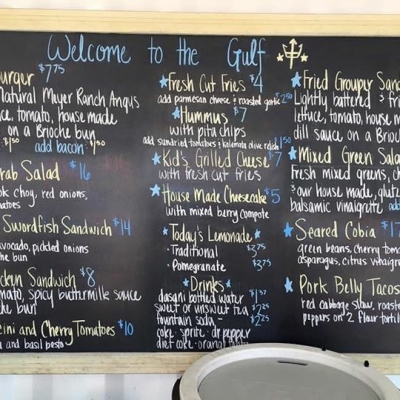 Welcome to the Gulf
urger $7.75
Natural Meyer Ranch Angus
uce, tomato, house made
on a Brioche bun
add bacon $1.50
rab Salad $16
ok choy, red onions,
matoes
Swordfish Sandwich $14
avocado, pickled onions
che bun
cken Sandwich $8
mato, spicy buttermilk sauce
che bun
ini and Cherry Tomatoes $10
and basil pesto
Fresh Cut Fries $4
add parmesan cheese & roasted garlic $2.50
Hummus $7
with pita chips
add sundried tomatoes & kalamata olive relish $1.50
Kid's Grilled Cheese $7
with fresh cut fries
House Made Cheesecake $5
with mixed berry compote
Today's Lemonade
-Traditional $3.75
-Pomegranate $3.75
Drinks
dasani bottled water
sweet or unsweet tea
fountain soda $2.25
coke - sprite - dr pepper
diet coke - orange
Fried Grouper Sand
Lightly battered & fri
lettuce, tomato, house m
dill sauce on a Brioch
Mixed Green Sala
fresh mixed greens, ch
& our house made, glut
balsamic vinaigrette add
Seared Cobia $17
green beans, cherry tomat
asparagus, citrus vinaigr
Pork Belly Tacos
red cabbage slaw, roaste
peppers on 2 flour tortil